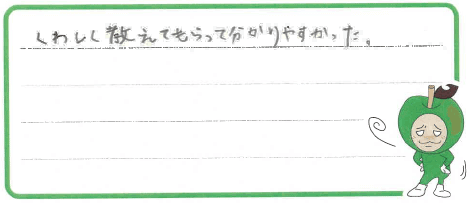 くわしく教えてもらって分かりやすかった。